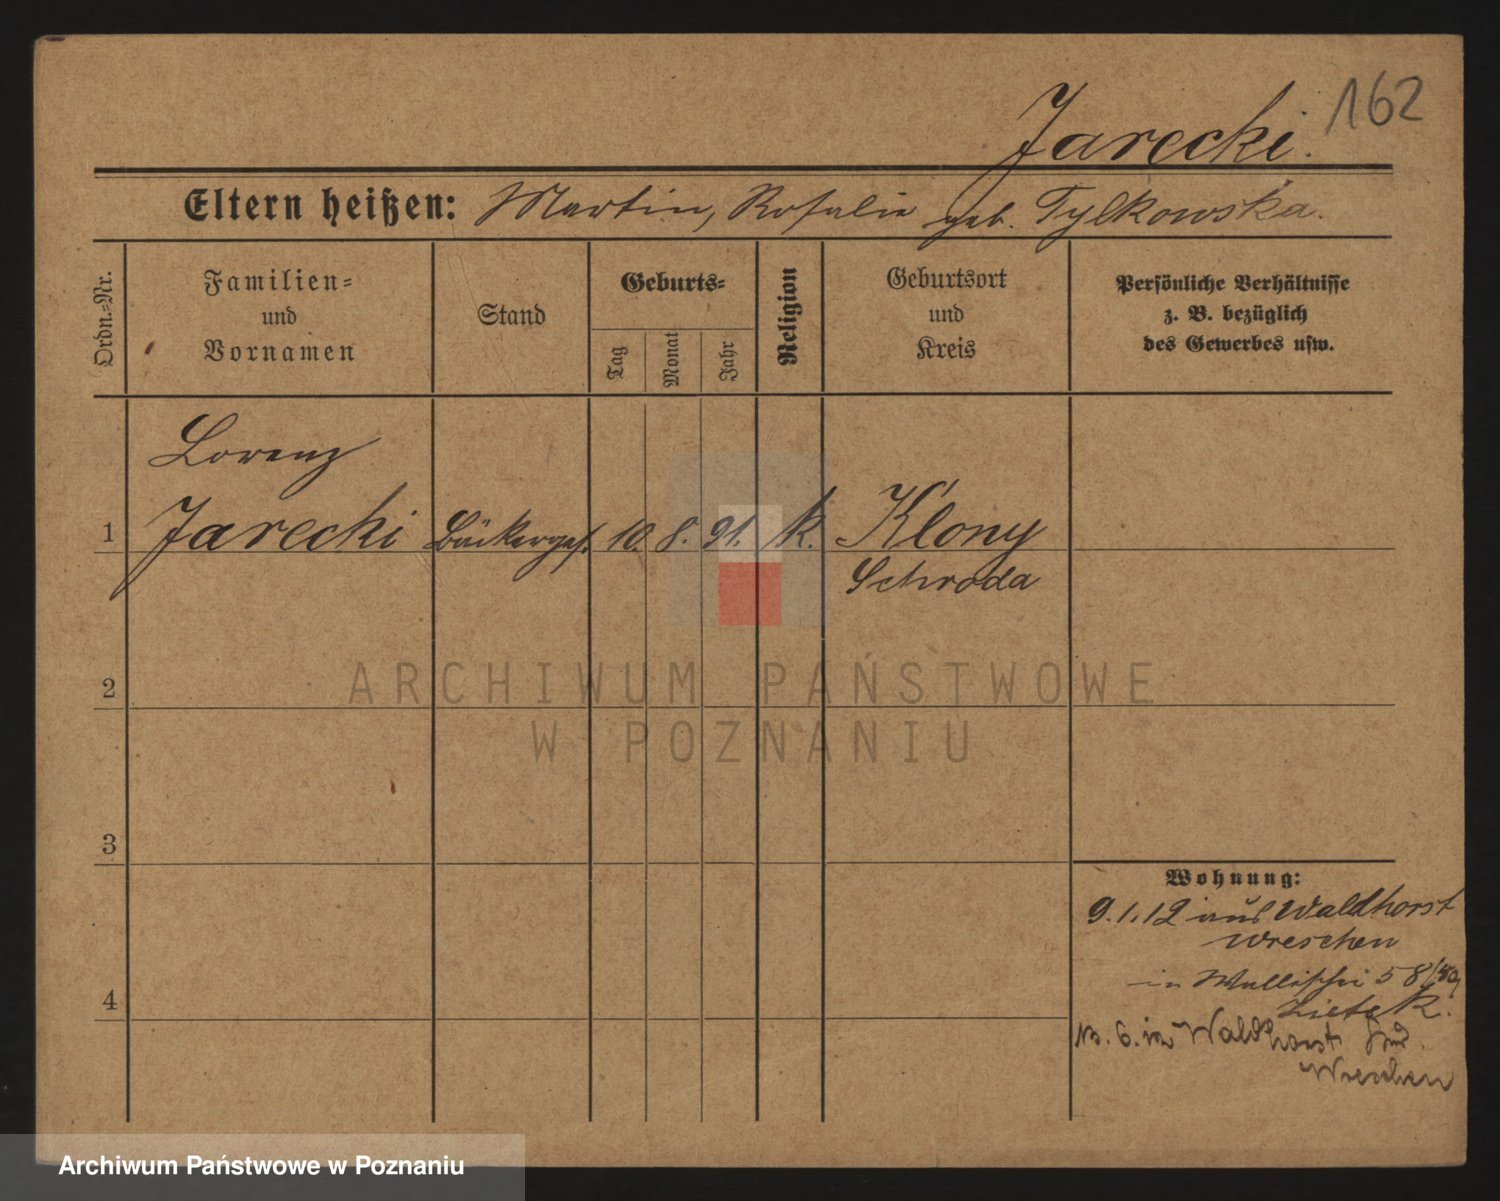 162
Jarecki.
Eltern heißen: Martin, Rosalie geb. Tylkowska.
Ordn.=Nr.
Familien=
und
Vornamen
Stand
Geburts=
Tag
Monat
Jahr
Religion
Geburtsort
und
Kreis
Persönliche Verhältnisse
z. B. bezüglich
des Gewerbes usw.
Lorenz
1 Jarecki Bäckerges. 10. 8. 91. k. Klony
Schroda
2
3
4
Wohnung:
9.1.12 aus Waldhorst
Wreschen
in Wallischei 58/59
B. 6. in Waldhorst
Wreschen
ARCHIWUM PAŃSTWOWE
W POZNANIU
Archiwum Państwowe w Poznaniu